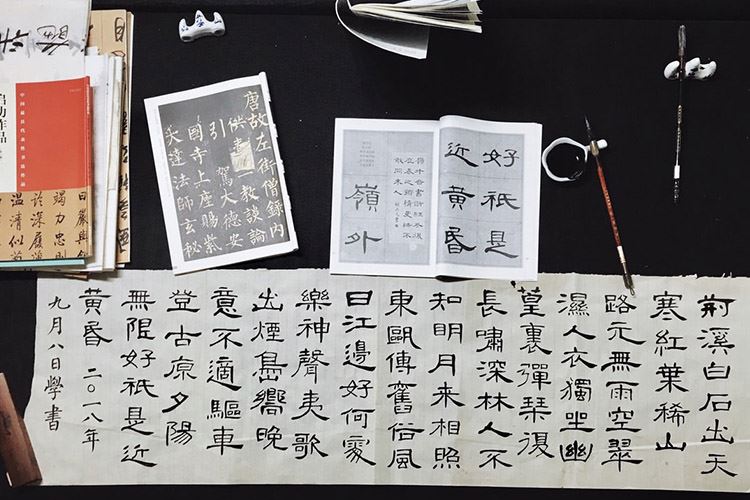 启功作品
中国最具代表性书法作品
竭力忠則
唐故左街僧錄内
供奉三教談論
引駕大德安
國寺上座賜紫
大達法師玄秘
好祇是
近黄昏
嶺外
荆溪白石出天
寒紅葉稀山
路元無雨空翠
濕人衣獨坐幽
篁裏彈琴復
長嘯深林人不
知明月来相照
東甌傳舊俗風
日江邊好何處
樂神聲夷歌
出煙島嚮晚
意不適驅車
登古原夕陽
無限好祇是近
黄昏 二〇一八年
九月八日學書